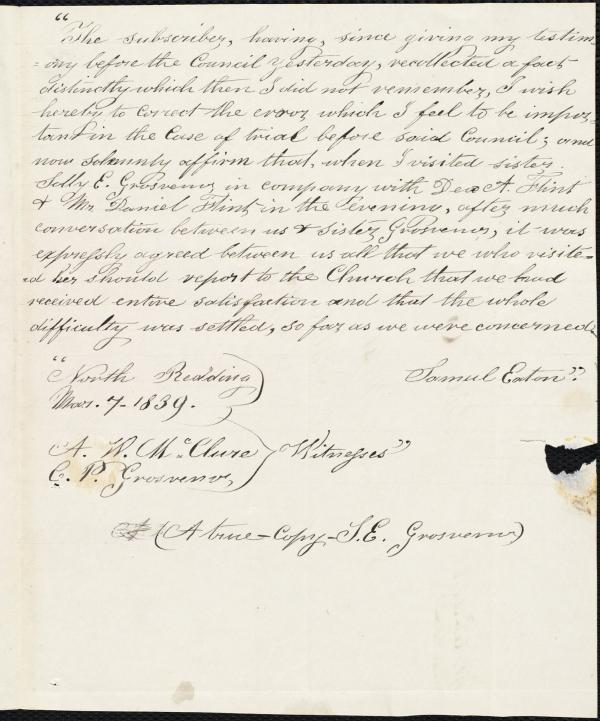 "The subscriber, having, since giving my testim-
=ony before the Council yesterday, recollected a fact
distinctly which then I did not remember, I wish
hereby to correct the error which I feel to be impor-
tant in the case of trial before said Council; and
now solemnly affirm that, when I visited sister
Sally E. Grosvenor in company with Dea A. Flint
& Mr. Daniel Flint in the evening, after much
conversation between us & sister Grosvenor, it was
expressly agreed between us all that we who visite=
=d her should report to the Church that we had
received entire satisfaction and that the whole
difficulty was settled, so far as we were concerned.
Samuel Eaton".
"North Redding
Mar. 7- 1839.
A. W. McClure
C. P. Grosvenor
Witnesses"
(A true-Copy-S.E. Grosvenor)